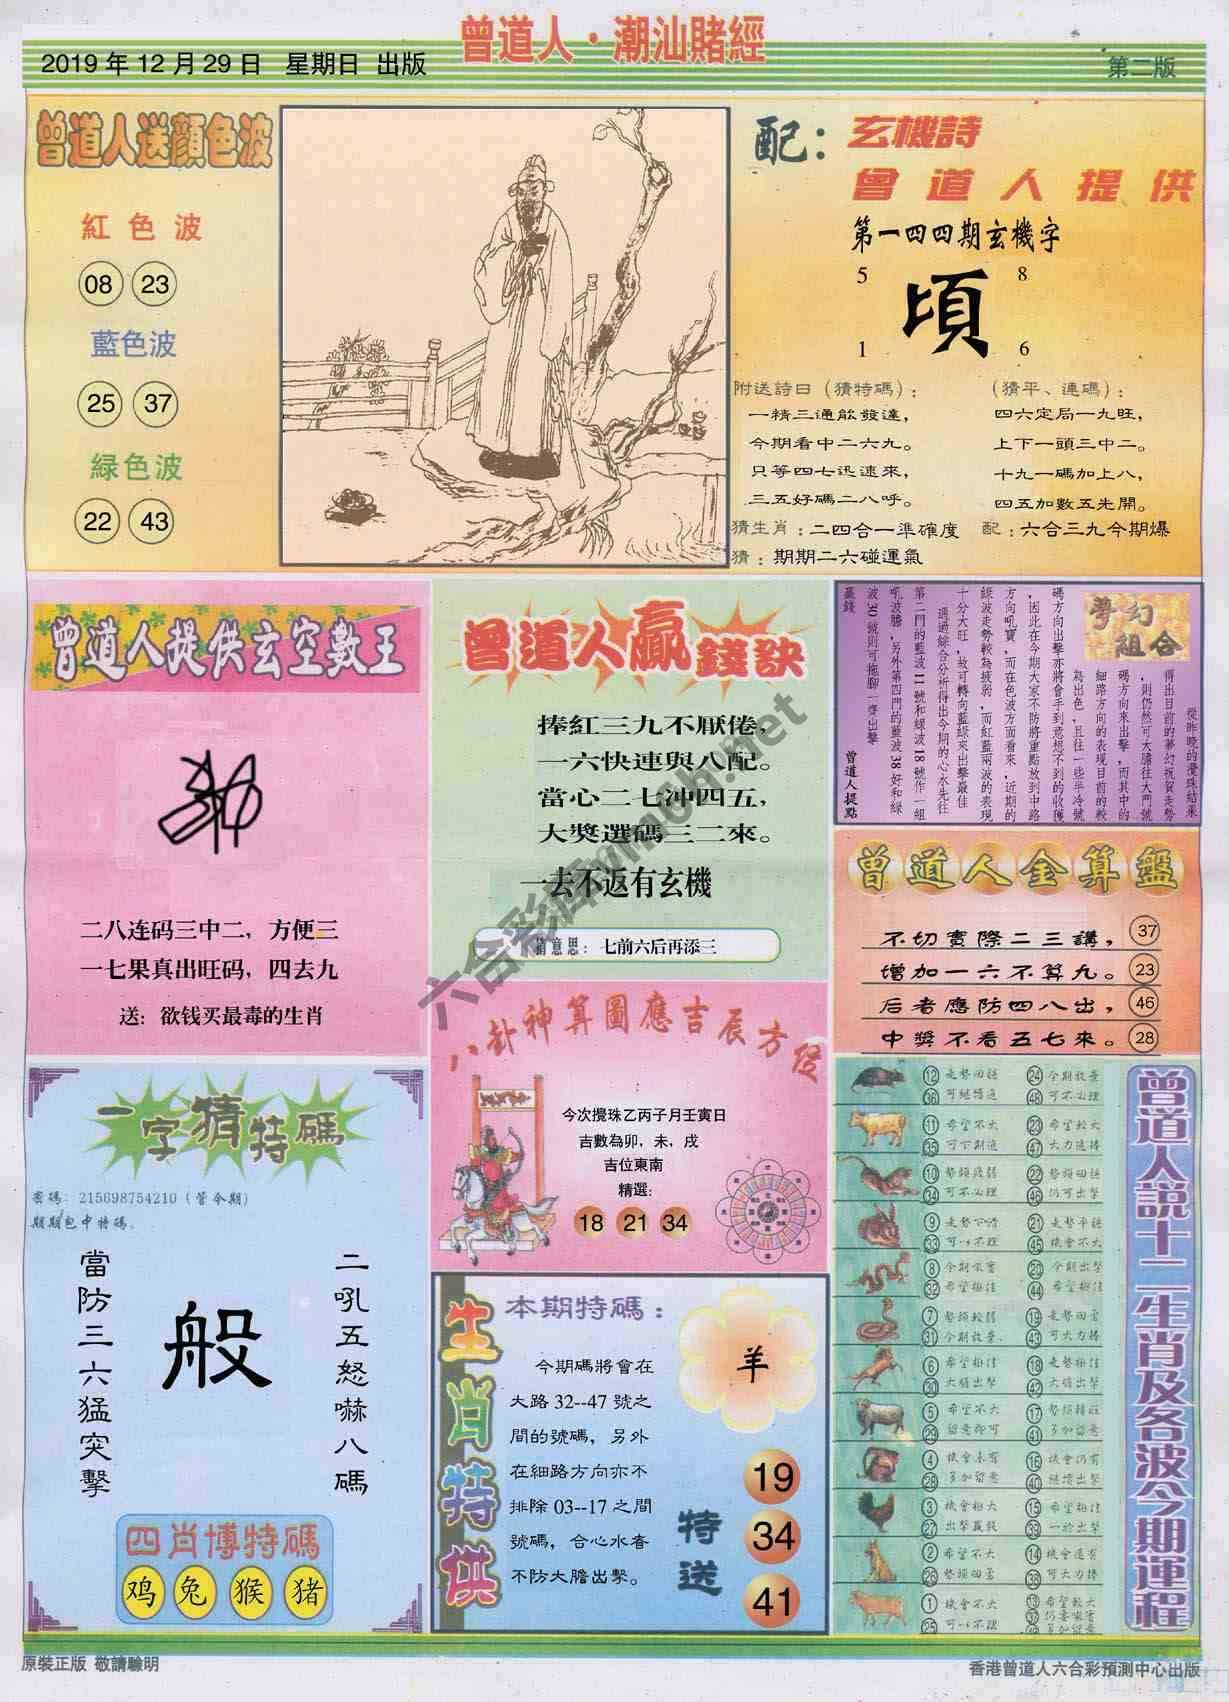 曾道人·潮汕賭經
2019 年 12 月 29 日 星期日 出版
第二版
曾道人送顏色波
紅色波
08 23
藍色波
25 37
綠色波
22 43
配：玄機詩
曾道人提供
第一四四期玄機字
5 8
頃
1 6
附送詩曰（猜特碼）：
一精三通飲發達，
今期看中二六九。
只等四七迅速來，
三五好碼二八呼。
（猜平、連碼）：
四六定局一九旺，
上下一頭三中二。
十九一碼加上八，
四五加數五先開。
猜生肖：二四合一準確度
配：六合三九今期爆
猜：期期二六碰運氣
曾道人提供玄空數王
二八连码三中二，方便三
一七果真出旺码，四去九
送：欲钱买最毒的生肖
曾道人贏錢訣
捧紅三九不厭倦，
一六快連與八配。
當心二七沖四五，
大獎選碼三二來。
一去不返有玄機
猜意思：七前六后再添三
夢幻組合
從昨晚的攪珠結果
得出目前的夢幻祝賀走勢
，則仍然可大膽往大門號
碼方向來出擊，而其中的
細路方向的表現目前的較
為出色，且往一些半冷號
碼方向出擊亦將會手到意想不到的收穫
，因此在今期大家不防將重點放到中路
方向吼寶，而在色波方面看來，近期的
綠波走勢較為疲弱，而紅藍兩波的表現
十分大旺，故可轉向藍綠來出擊最佳
通過綜合分析得出今期的心水先往
第二門的藍波11號和綠波18號作一組
吼波膽，另外第四門的藍波38好和綠
波30號則可拖腳一齊出擊
贏錢
曾道人提點
曾道人金算盤
不切實際二三講，37
增加一六不算九。23
后者應防四八出，46
中獎不看五七來。28
八卦神算圖應吉辰方位
今次攪珠乙丙子月壬寅日
吉數為卯，未，戌
吉位東南
精選:
18 21 34
一字猜特碼
密碼: 215698754210 (管今期)
期期包中特碼.
二吼五怒嚇八碼
般
當防三六猛突擊
四肖博特碼
鸡 兔 猴 猪
生肖特供
本期特碼：
羊
今期碼將會在
大路 32--47 號之
間的號碼，另外
在細路方向亦不
排除 03--17 之間
號碼，合心水者
不防大膽出擊。
特送
19
34
41
曾道人說十二生肖及各波今期運程
12 36 24 48 可不心理
11 希望不大 35 23 希望較大 47 大力追捧
10 34 可不心理 22 46 仍可出擊
9 33 可以不理 21 45 機會不大
8 32 希望極佳 20 今期出擊 44 希望極佳
7 31 19 43 可大力捧
6 希望極佳 30 大膽出擊 18 42 大膽出擊
5 希望不大 29 留意即可 17 41 多加留意
4 機會未有 28 多加留意 16 機會仍有 40
3 機會極大 27 出擊贏錢 15 希望極佳 39 一於出擊
2 希望不大 26 14 機會還有 38 可大力捧
1 機會不大 25 可以不理 13 希望較大 37 49
六合彩库
原裝正版 敬請驗明
香港曾道人六合彩預測中心出版